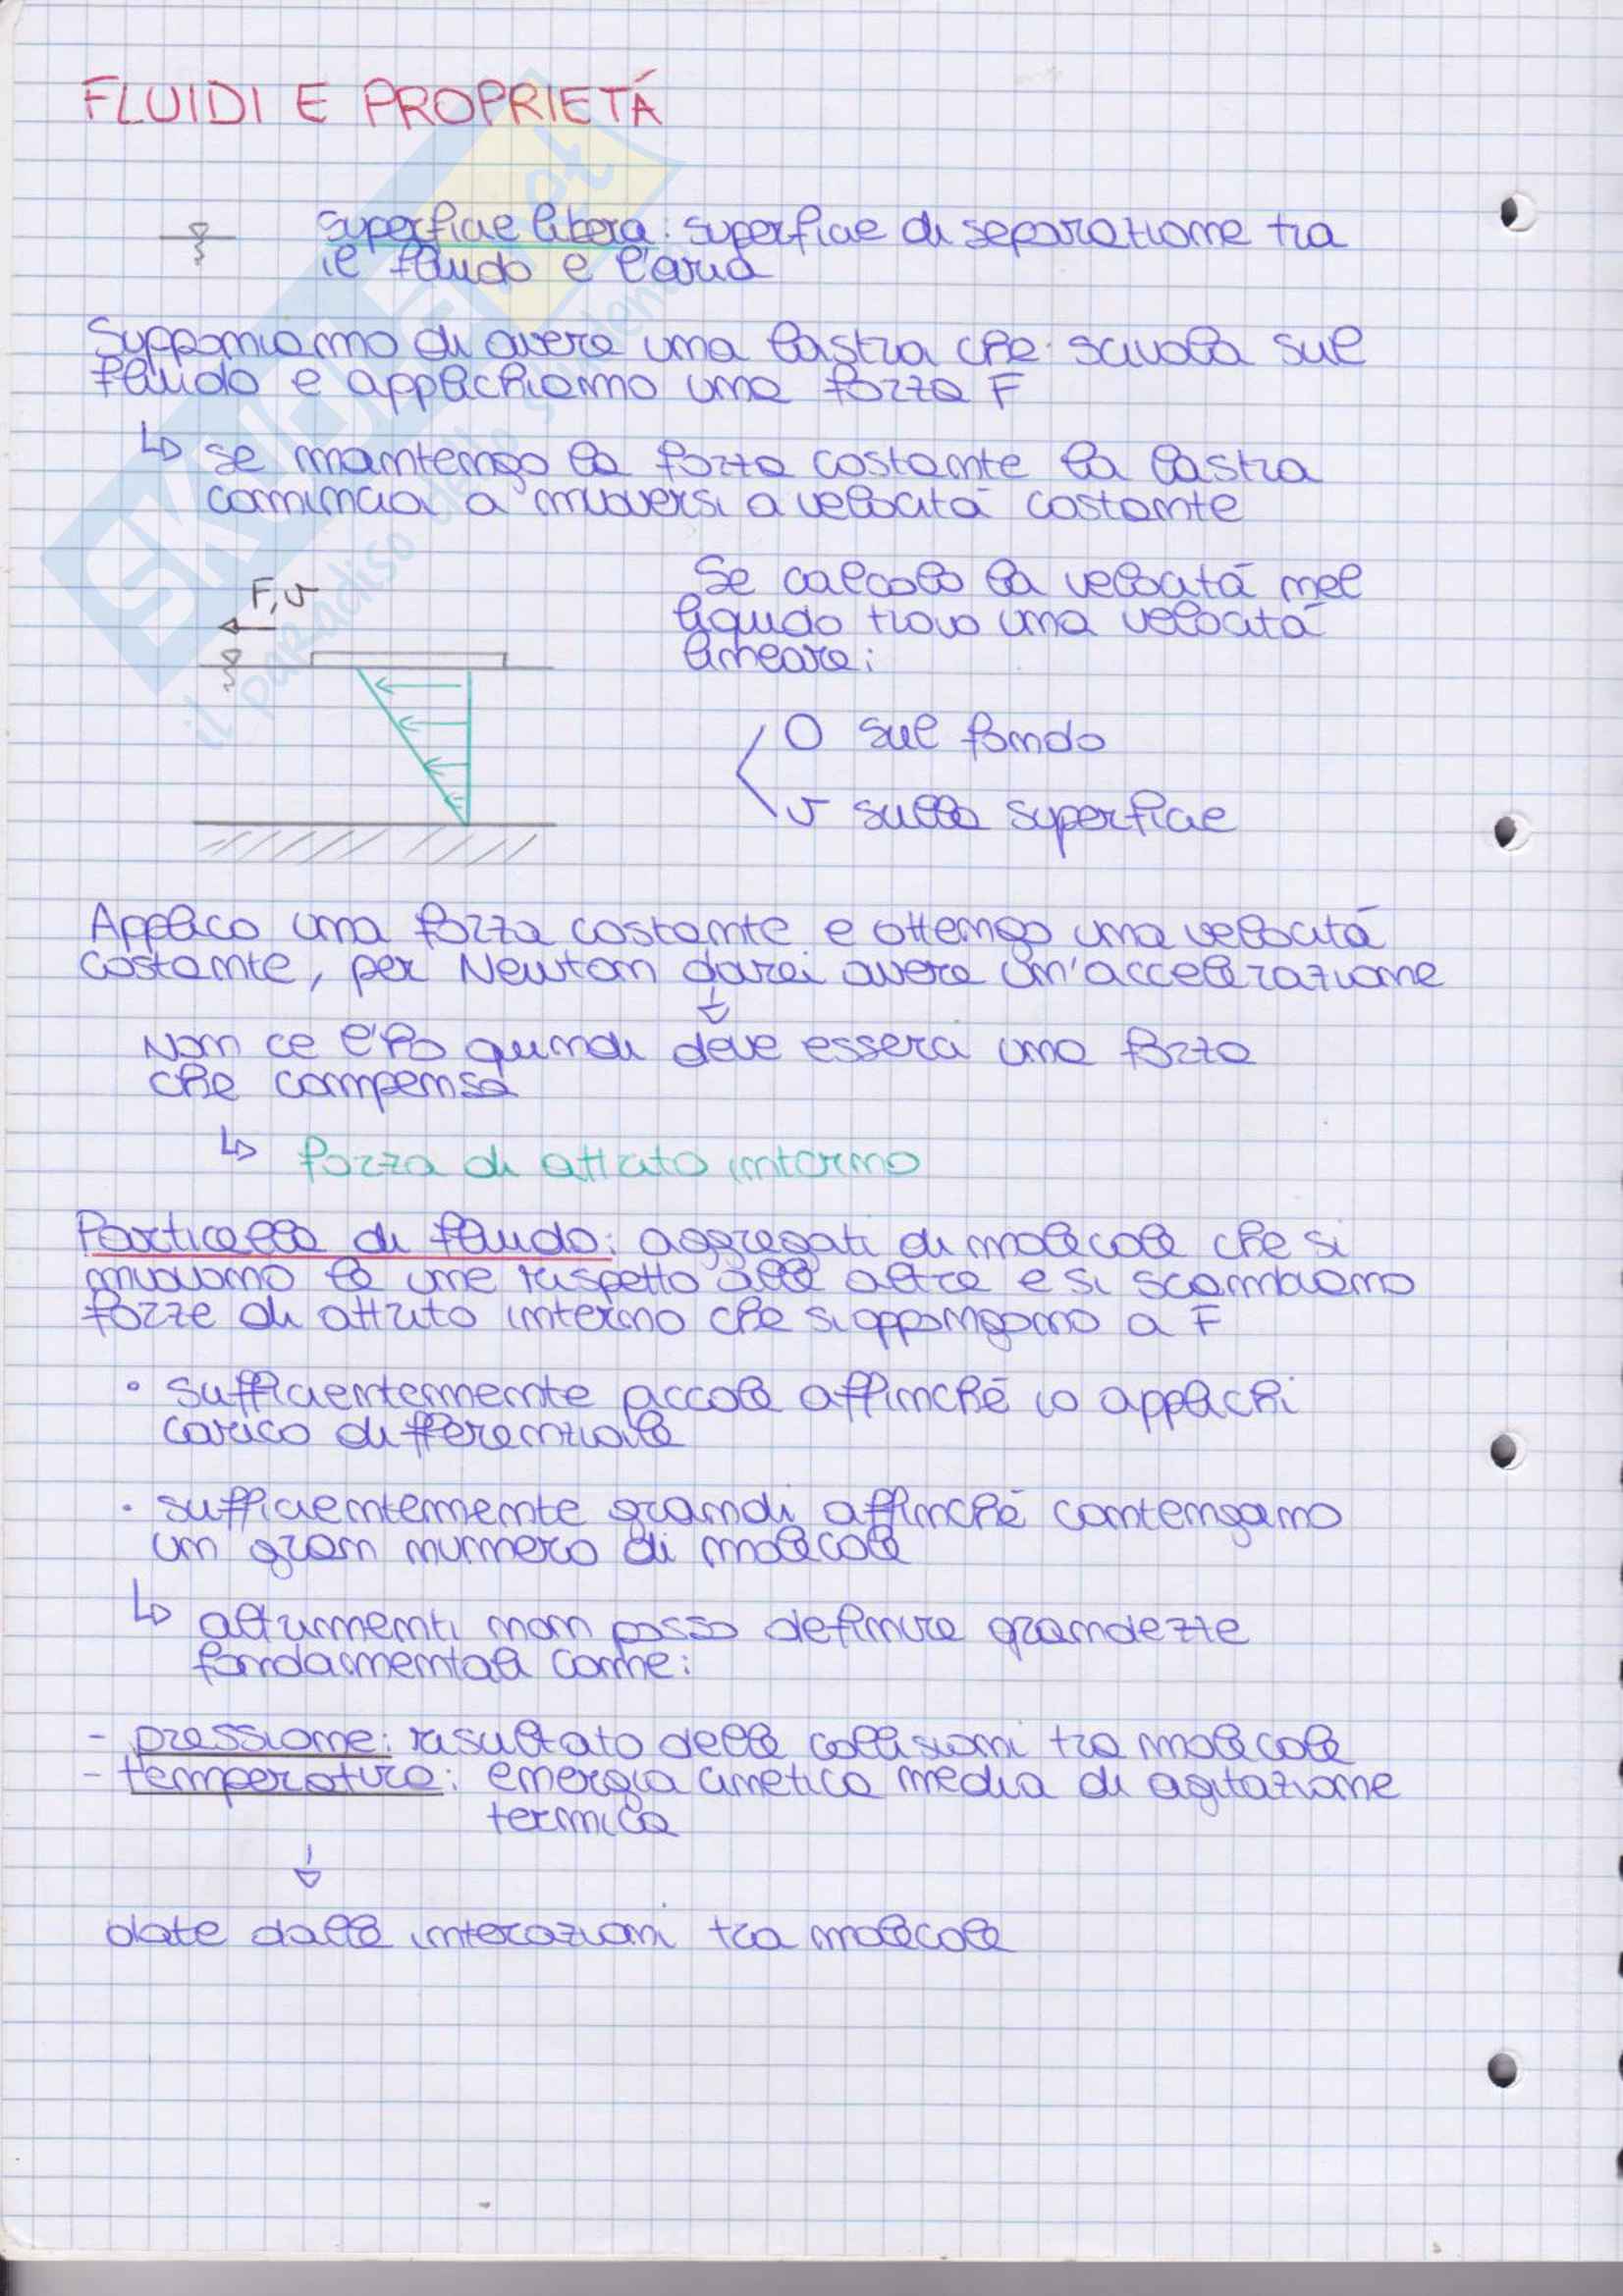 FLUIDI E PROPRIETÁ
superficie libera: superficie di separazione tra
il fluido e l'aria
Supponiamo di avere una lastra che scivola sul
fluido e applichiamo una forza F
↳ se mantengo la forza costante la lastra
comincia a muoversi a velocitá costante
F, v
Se calcolo la velocitá nel
liquido trovo una velocitá
lineare:
0 sul fondo
v sulla superficie
Applico una forza costante e ottengo una velocitá
costante, per Newton dovrei avere un'accelerazione
↓
Non ce l'ho quindi deve esserci una forza
che compensa
↳ forza di attrito interno
Particella di fluido: aggregati di molecole che si
muovono le une rispetto alle altre e si scambiano
forze di attrito interno che si oppongono a F
• sufficientemente piccole affinché io applichi
carico differenziale
• sufficientemente grandi affinché contengano
un gran numero di molecole
↳ altrimenti non posso definire grandezze
fondamentali come:
- pressione: risultato delle collisioni tra molecole
- temperatura: energia cinetica media di agitazione
termica
↓
date dalle interazioni tra molecole
SKUOLA.net
il paradiso dello studente